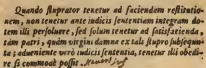 Quando stuprator tenetur ad faciendam restitutio-
nem, non tenetur ante iudicis sententiam integram do-
tem illi persoluere, sed solum tenetur ad satisfacienda
tam patri, quàm virgini damna ex tali stupro subsequu-
ta: adueniente verò iudicis sententia, tenetur illi obedi-
re si commodè possit.